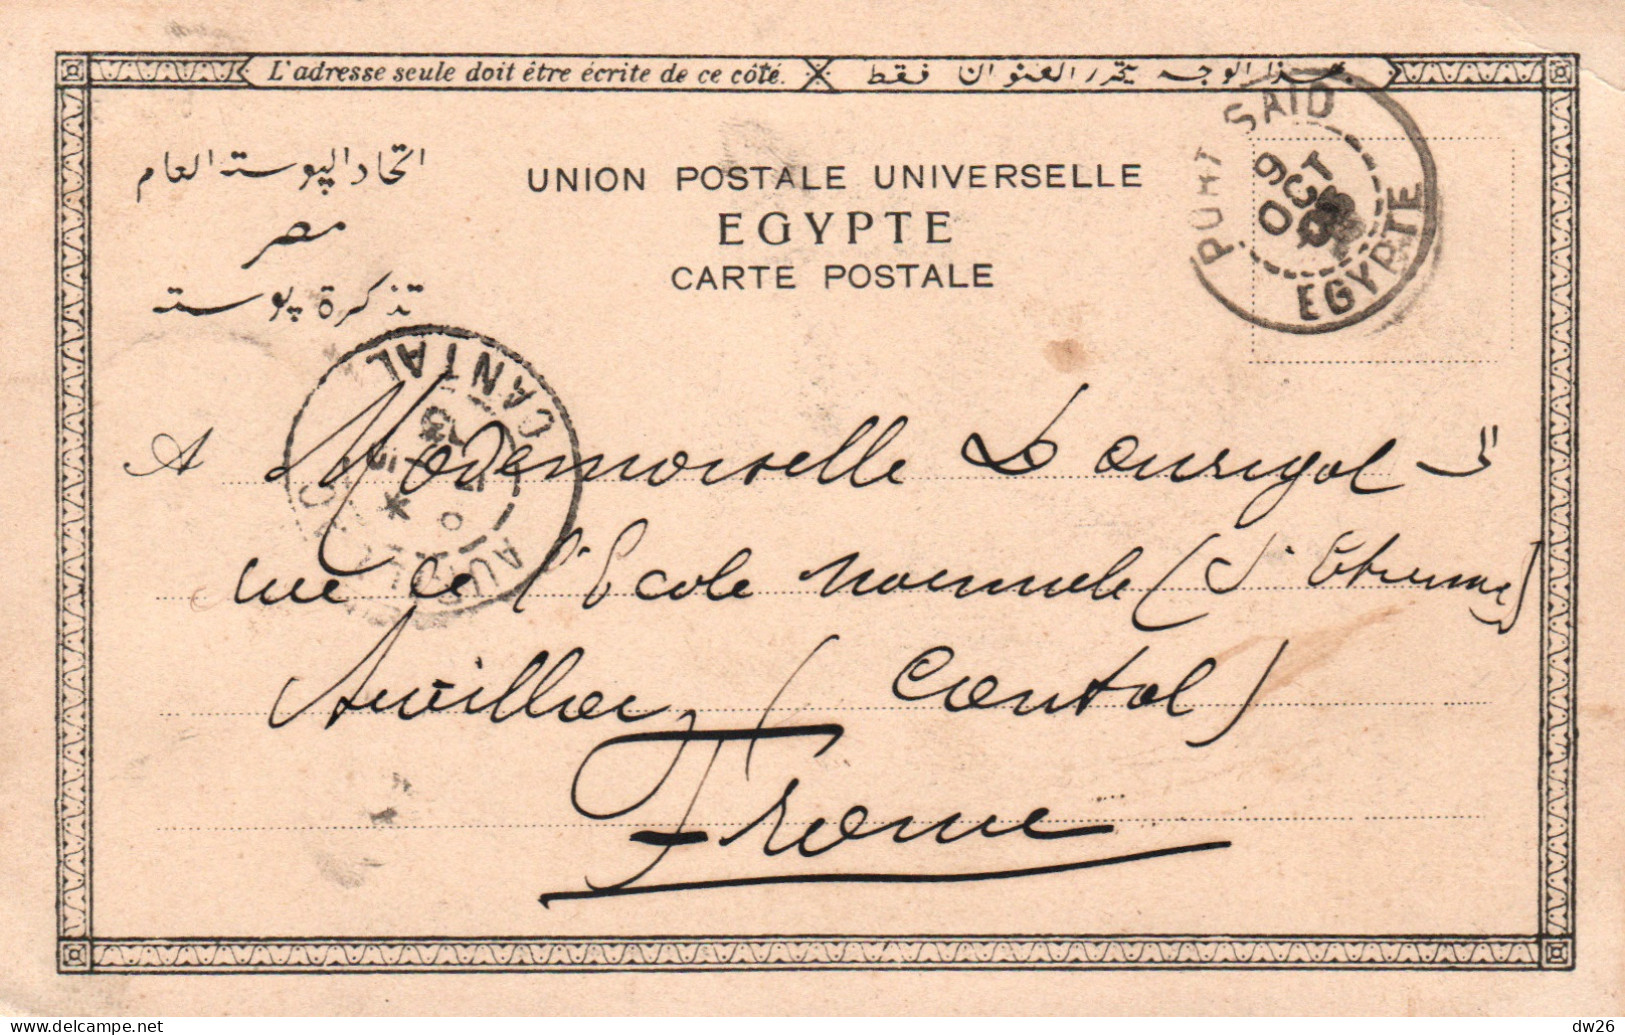 L'adresse seule doit être écrite de ce côté. هذا الوجه يحرر العنوان فقط
اتحاد البوستة العام
مصر
تذكرة بوستة
UNION POSTALE UNIVERSELLE
EGYPTE
CARTE POSTALE
PORT SAID
9
OCT
EGYPTE
CANTAL
A Mademoiselle
rue de l'Ecole normale (St Etienne)
Aurillac (Cantal)
France
delcampe.net
dw26